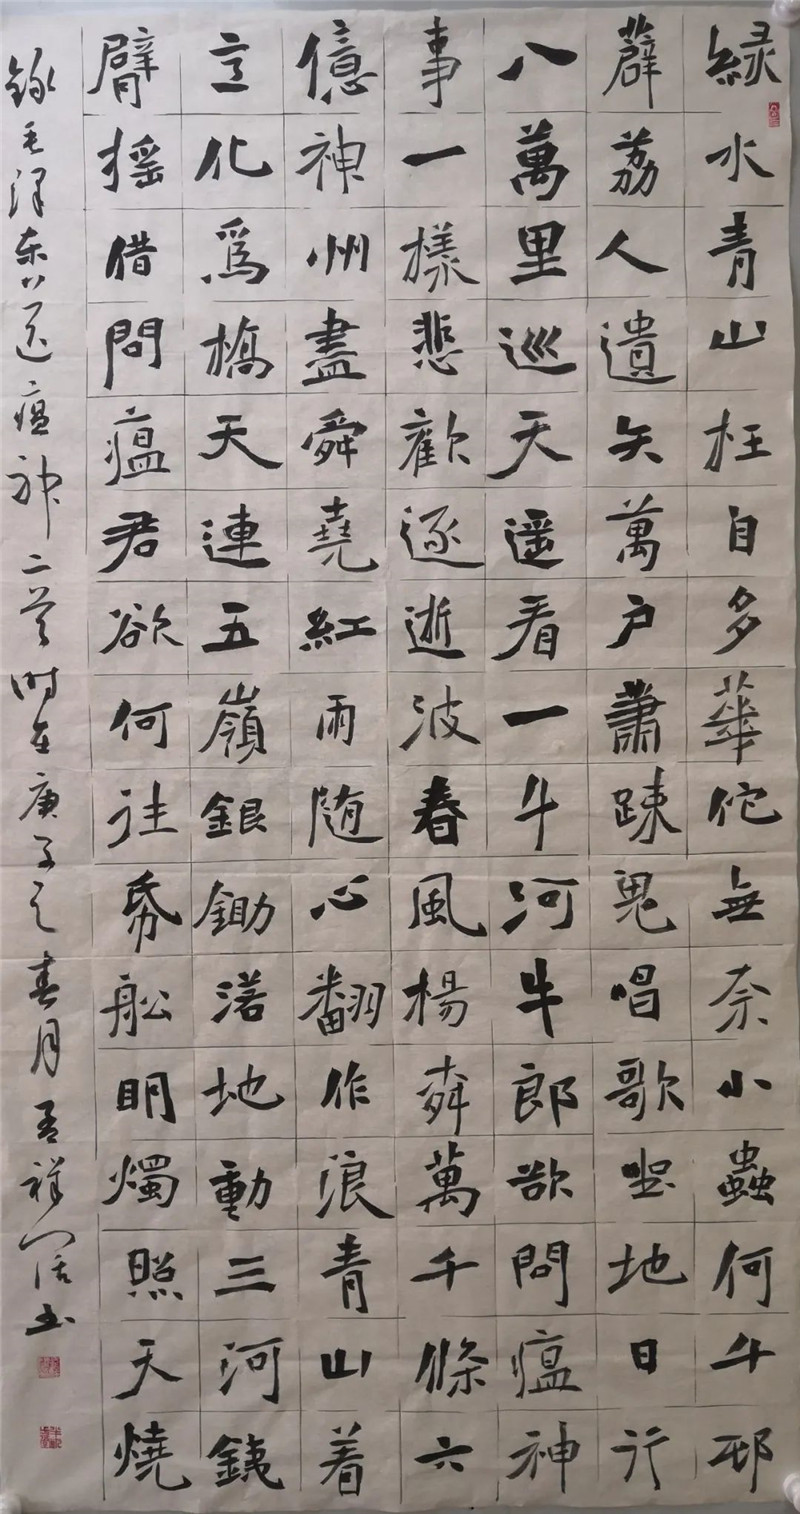 緑水青山枉自多華佗無奈小蟲何千邨
薜荔人遺矢萬户蕭踈鬼唱歌坐地日行
八萬里巡天遥看一千河牛郎欲問瘟神
事一樣悲歡逐逝波春風楊柳萬千條六
億神州盡舜堯紅雨随心翻作浪青山着
意化爲橋天連五嶺銀鋤落地動三河鐵
臂摇借問瘟君欲何往帋船明燭照天燒
録毛泽东《送瘟神》二首时在庚子之春月祥书